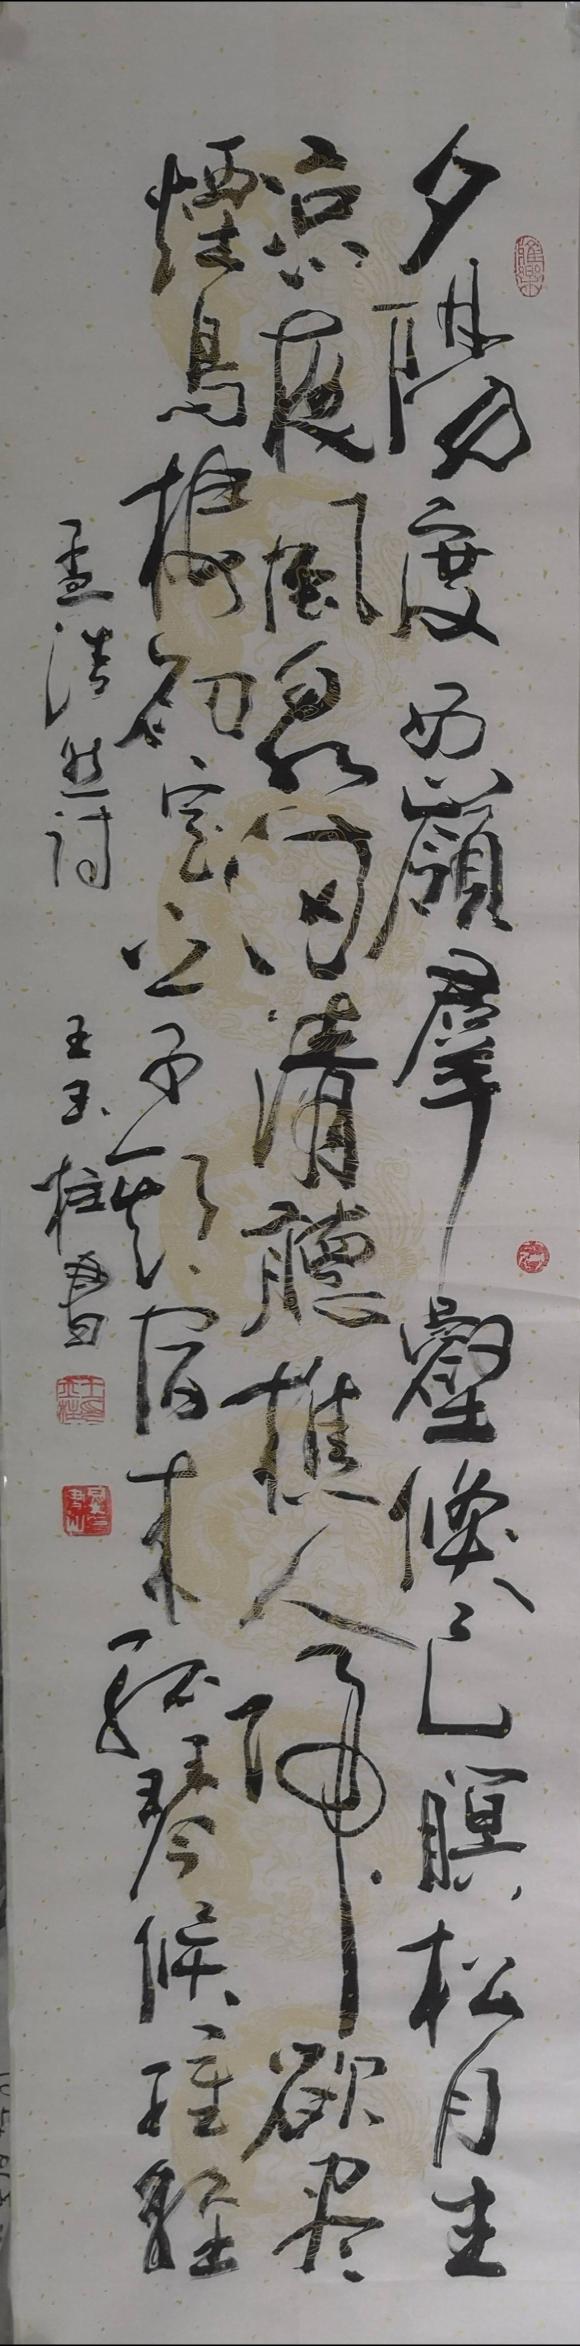 夕陽度西嶺羣壑倏已瞑松月生
涼夜風泉滿清聽樵人歸欲盡
煙鳥棲初定之子期宿來孤琴候蘿徑
孟浩然詩 王玉柱書